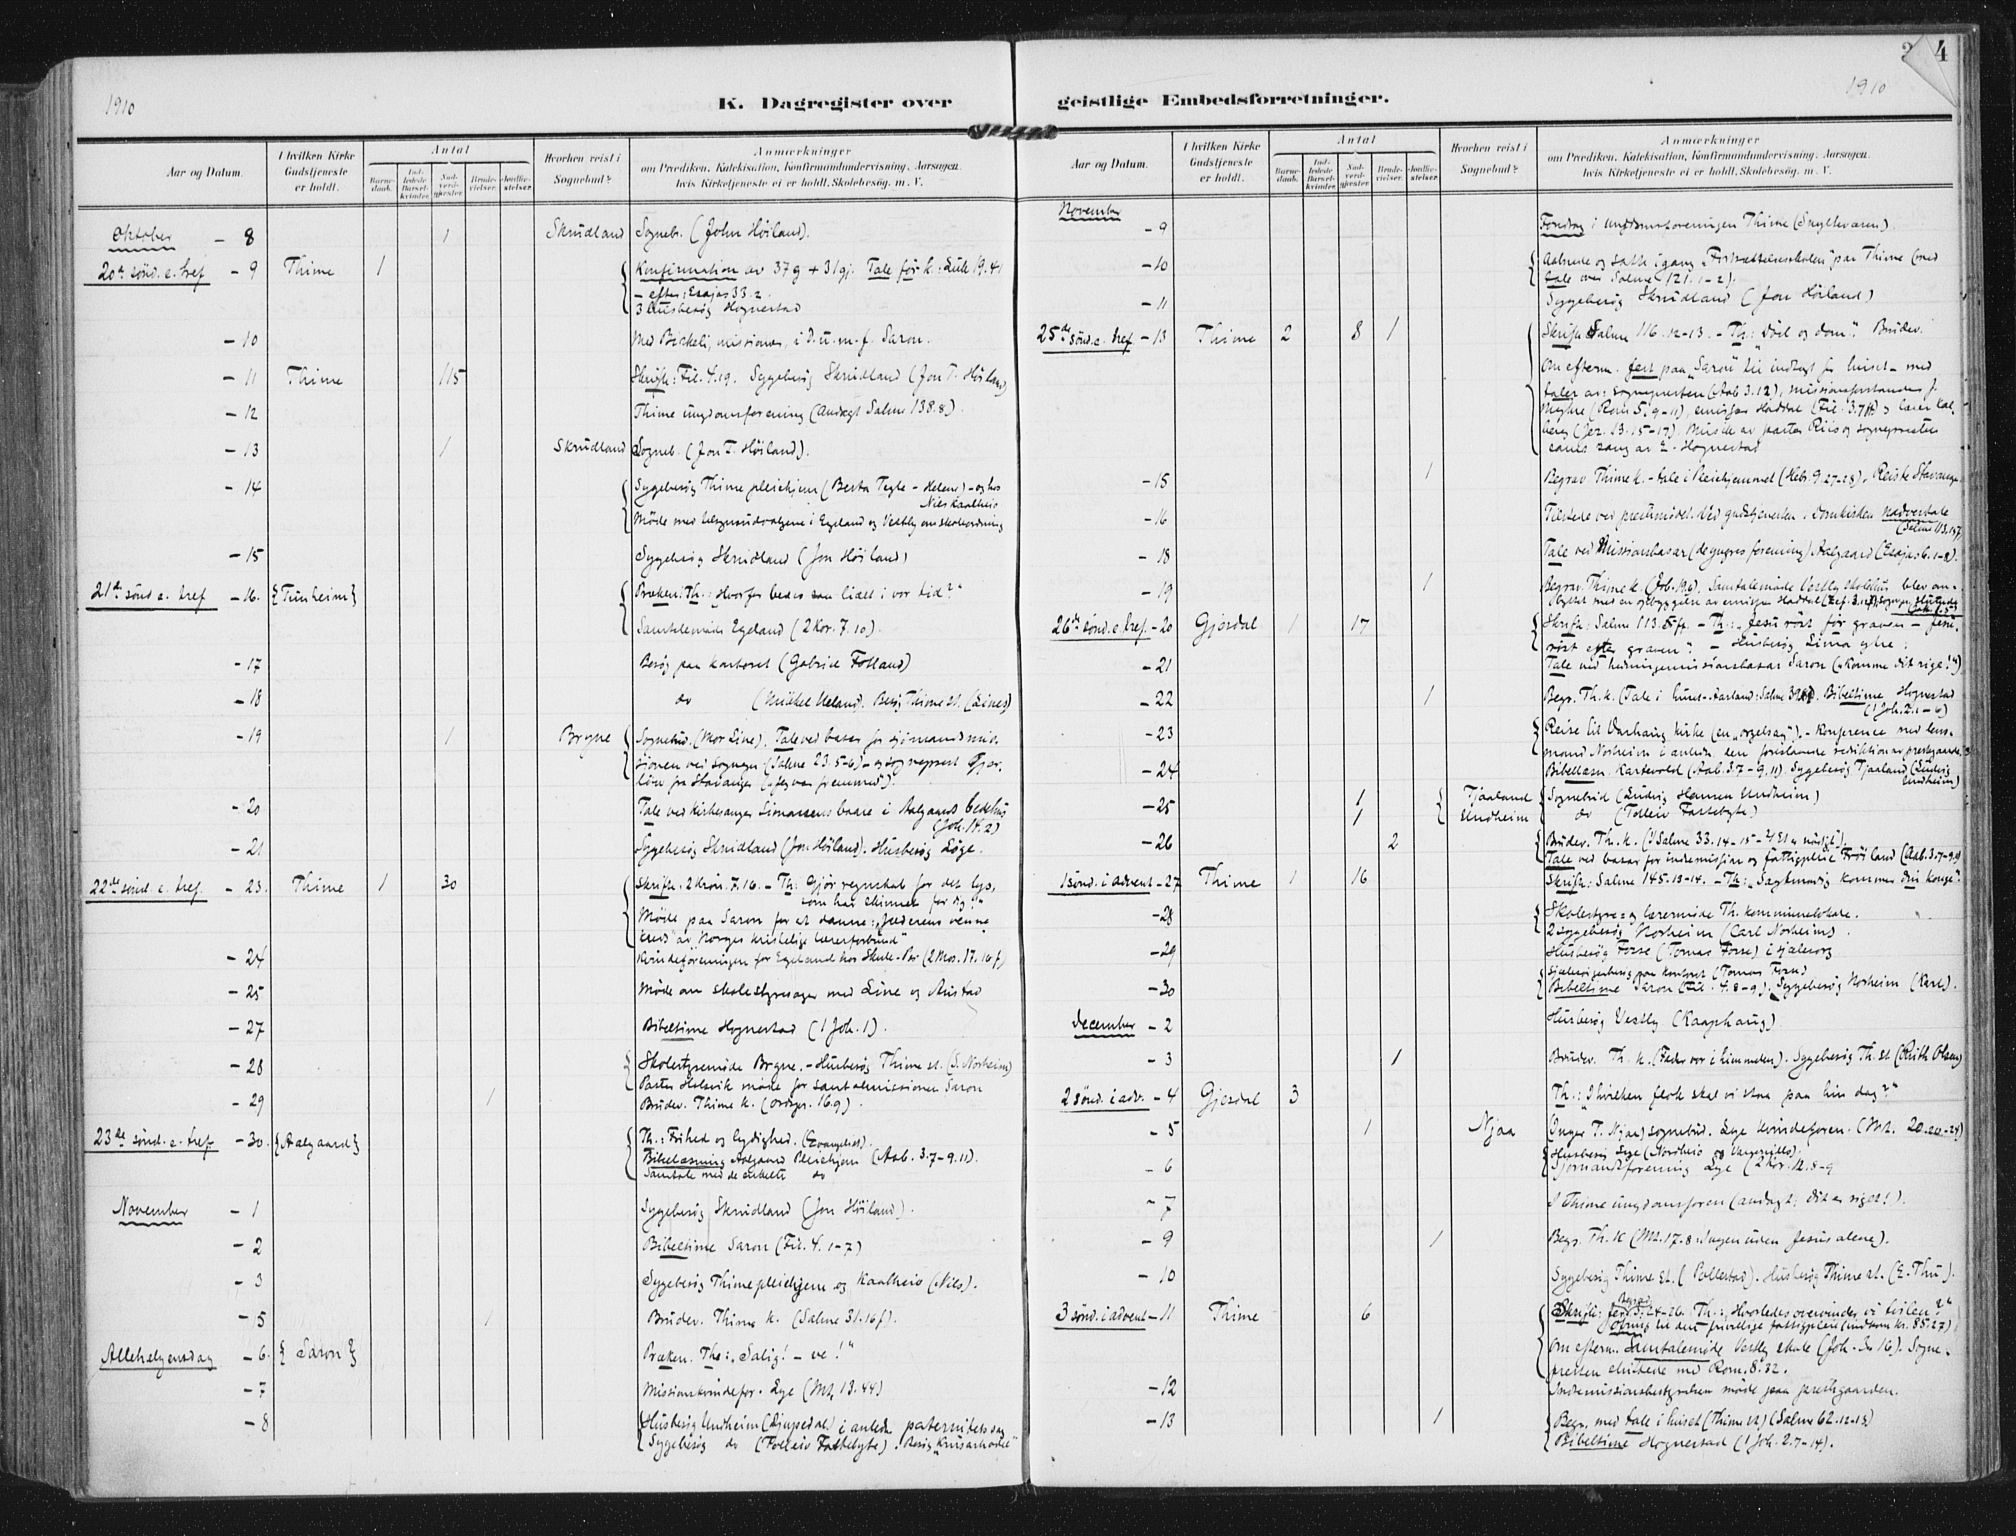 1910
K. Dagregister over
Aar og Datum.
I hvilken Kirke Gudstjeneste er holdt.
Antal
Barne-daab.
Ind-ledede Barsel-kvinder.
Nad-verd-gjester.
Brude-vielser.
Jordfæ-stelser.
Hvorhen reist i Sognebud?
Anmærkninger
om Prædiken, Katekisation, Konfirmandundervisning, Aarsagen,
hvis Kirketjeneste ei er holdt, Skolebesøg. m. V.
Oktober - 8 1 Skrudland Sogneb. (John Höiland).
20de sönd. e. tref - 9 Thime 1 Konfirmation av 37 g + 31 gj. Tale för k.: Luk 19.41
- efter: Esajas 33.2.
3 Husbesög Hognestad
- 10 Med Birkeli, missionær, i D.u.m.f. Saron.
- 11 Thime 115 Skrifte: Fil. 4.19. Sygebesög Skrudland (Jon T. Höiland)
- 12 Thime ungdomsforening (andagt Salme 138.8).
- 13 1 Skrudland Sogneb. (Jon T. Höiland).
- 14 Sygebesög Thime pleiehjem (Berta Tegle - Helene) - og hos
Nils Kaalheio
Möde med tilsynsudvalgene i Egeland og Vestly om skoleordning
- 15 Sygebesög Skrudland (Jon Höiland)
21de sönd e. tref - 16. {Tunheim} Præken: Th.: Hvorfor bedes saa lidet i vor tid?"
Samtalemöde Egeland (2 Kor. 7.10).
- 17 Besög paa kontoret (Gabriel Folland)
- 18 do (Mikkel Ueland). Besög Thime st. (Lines)
- 19 1 Bryne Sognebud. (Mor Line). Tale ved basar for sjömandsmis-
sionen ved sogneprest (Salme 23.5-6) - og sogneprest Gjer-
löw fra Stavanger ("Jeg var fremmed").
- 20 Tale ved kirkesanger Simonsens baare i Aalgaards bedehus
(Joh. 14.2)
- 21 Sygebesög Skrudland (Jon Höiland). Husbesög Löge.
22de sönd. e. tref. - 23. Thime 1 30 Skrifte. 2 Krön. 7.16. - Th: Gjör regnskab for det lys,
som har skinnet for dig!"
Möde paa Saron for at danne: "Jæderens venne-
kreds" av "Norges kristelige lærerforbund"
- 24 Kvindeforeningen for Egeland hos Skule-Per (2 Mos. 17.16 f)
- 25 Möde om skolestyresager med Line og Austad
- 27 Bibeltime Hognestad (1 Joh. 1).
- 28 Skolestyremöde Bryne. - Husbesög Thime st. (S. Norheim)
Pastor Holsvik möde for santalmissionen Saron
- 29 1 Brudev. Thime k. (Ordspr. 16.9).
23de sönd. e. tref - 30. {Aalgaard} Th.: Frihed og lydighed. (Evangeliet).
Bibellæsning Aalgaard Pleiehjem (Aab. 3.7-9.11).
Samtale med de enkelte do
November - 1 Sygebesög Skrudland (Jon Höiland).
- 2 Bibeltime Saron (Fil. 4.1-7)
- 3 Sygebesög Thime pleiehjem og Kaalheio (Nils).
- 5 1 Brudev. Thime k. (Salme 31.16 f).
Allehelgensdag - 6. {Saron} Præken. Th.: "Salig! - ve!"
- 7 Missionskvindefor. Lye (Mt. 13.44)
- 8 Husbesög Undheim (Djupedal) i anledn. paternitetssag
Sygebesög do (Tolleiv Fattebyte).

1910
4
geistlige Embedsforretninger.
Aar og Datum.
I hvilken Kirke Gudstjeneste er holdt.
Antal
Barne-daab.
Ind-ledede Barsel-kvinder.
Nad-verd-gjester.
Brude-vielser.
Jordfæ-stelser.
Hvorhen reist i Sognebud?
Anmærkninger
om Prædiken, Katekisation, Konfirmandundervisning, Aarsagen,
hvis Kirketjeneste ei er holdt, Skolebesøg. m. V.
November
- 9 Foredrag i ungdomsforeningen Thime
- 10 Aabnede og satte igang "Fortsættelsesskolen" paa Thime (med
tale over Salme 121.1-2).
- 11 Sygebesög Skrudland (Jon Höiland)
25de sönd. e. tref - 13 Thime 2 8 1 Skrifte Salme 116.12-13. - Th: "död og dom". Brudev.
Om efterm. fest paa "Saron" til indtægt for huset - med
taler av: sognepresten (Aab 3.12), missionsforstander J.
Myhre (Rom 5.9-11), emissær Haddal (Fil. 3.7 ff) og lærer Kal-
berg (Jer. 13.15-17). Musik av pastor Riis og sogneprestens
samt sang av E. Hognestad
- 15 1 Begrav. Thime k. - tale i Pleiehjemmet (Hebr. 9.27-28). Reiste Stavanger
- 16 Tilstede ved prestemödet. Ved gudstjenesten i Domkirken nadvertale
(Salme 113.5-7)
- 18 Tale ved Missionsbasar (de yngres forening) Aalgaard (Esajas 6.1-8).
- 19 1 Begrav. Thime k. (Job. 19.6). Samtalemöde Vestly skolehus blev om-
byttet med en opbyggelse av emissær Haddal (Zef. 3.12), sognepr. sluttede
26de sönd. e. tref. - 20 Gjesdal 1 17 Skrifte: Salme 113.5 ff. - Th.: "Jesu röst för graven - Jesu
röst efter graven". - Husbesög Lima ytre.
- 21 Tale ved hedningemissionsbasar Saron ("Komme dit rige!")
- 22 1 Begr. Th. k. (Tale i huset. Aarland: Salme). Bibeltime Hognestad
(1 Joh. 2.1-6)
- 23 Reise til Varhaug kirke (en "orgelsag"). - Konference med lens-
mand Norheim i anledn. den foreslaaede reduktion av prestegaarden
- 24 Bibellæsn. Kartevold (Aab. 3.7-9.11). Sygebesög Tjaaland (Ludvig
Undheim)
- 25 1 Tjaaland Sognebud (Ludvig Hansen Undheim)
1 Undheim do (Tolleiv Fattebyte)
- 26 2 Brudev. Th. k. (1) Salme 33.14-15
Tale ved basar for indremission og fattigpleie Fröiland (Aab. 3.7-9.11)
1 sönd. i advent - 27 Thime 1 16 Skrifte: Salme 145.13-14. - Th.: "Sagtmodig kommer din konge".
- 28 Skolestyre- og lærermöde Th. kommunelokale.
2 sygebesög Norheim (Carl Norheims).
- 29 Husbesög Fosse (Tomas Fosse) i sjælesorg
Sjælesörgerbesög paa kontoret (Tomas Fosse)
- 30 Bibeltime Saron (Fil. 4.8-9). Sygebesög Norheim (Karl).
December - 2 Husbesög Vestly (Kaaphaug)
- 3 1 Brudev. Th. k. (Fader vor i himmelen). Sygebesög Th. st (Ruth Olsen)
2 sönd. i adv. - 4 Gjesdal 3 Th.: "I hvilken flok skal vi staa paa hin dag?"
- 5 1 Njaa (Inger T. Njaa) sognebud. Lye kvindeforen. (Mt. 20.20-24)
Husbesög Lye (Nordheio og Vargervold).
- 6 Sjömandsforening Lye (2 Kor. 12.8-9
- 7 I Thime ungdomsforen (andagt: dit er riget!).
- 9 1 Begr. Th. k (Mt. 17.8: Ingen uden Jesus alene).
- 10 Sygebesög Thime st. (Pollestad). Husbesög Thime st. (E. Thu).
3 sönd. i advent - 11 Thime 6 Skrifte: 3.24-26. Th.: "Hvorledes overvinder vi tvilen?"
Ofring til den frivillige fattigpleie (indkom kr. 85.27)
Om efterm. Samtalemöde Vestly skole (Joh. 3.16). Sogne-
presten sluttede med Rom. 8.32.
- 12 Indremissionsbestyrelsen möde paa prestegaarden.
- 13 1 Begr. med tale i huset (Thime st) (Salme 62.12-13)
Bibeltime Hognestad (1 Joh. 2.7-14).